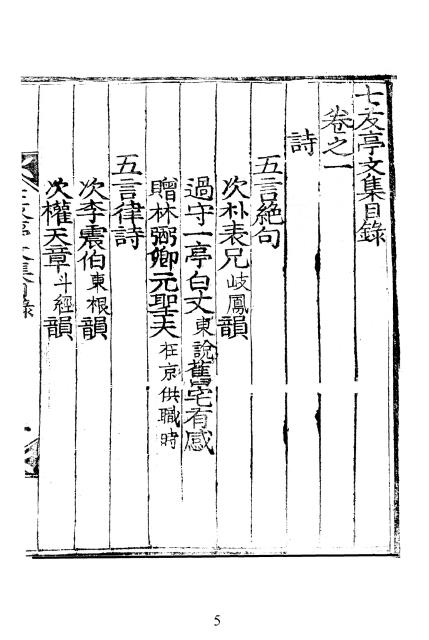 七友亭文集目錄
卷之一
詩
五言絕句
次朴表兄岐鳳韻
過守一亭白丈東說舊宅有感
贈林弼卿元聖夫在京供職時
五言律詩
次李震伯東根韻
次權天章斗經韻
七友亭文集目錄
5